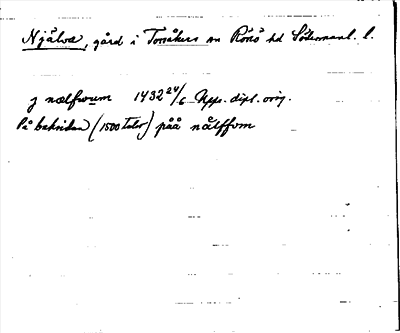 Njälva, gård i Torsåkers sn Rönö hd Södermanl. l.
j nælfwum 1432 24/6 Upps. dipl. orig.
På baksidan (1500 talet) påå nålffvm